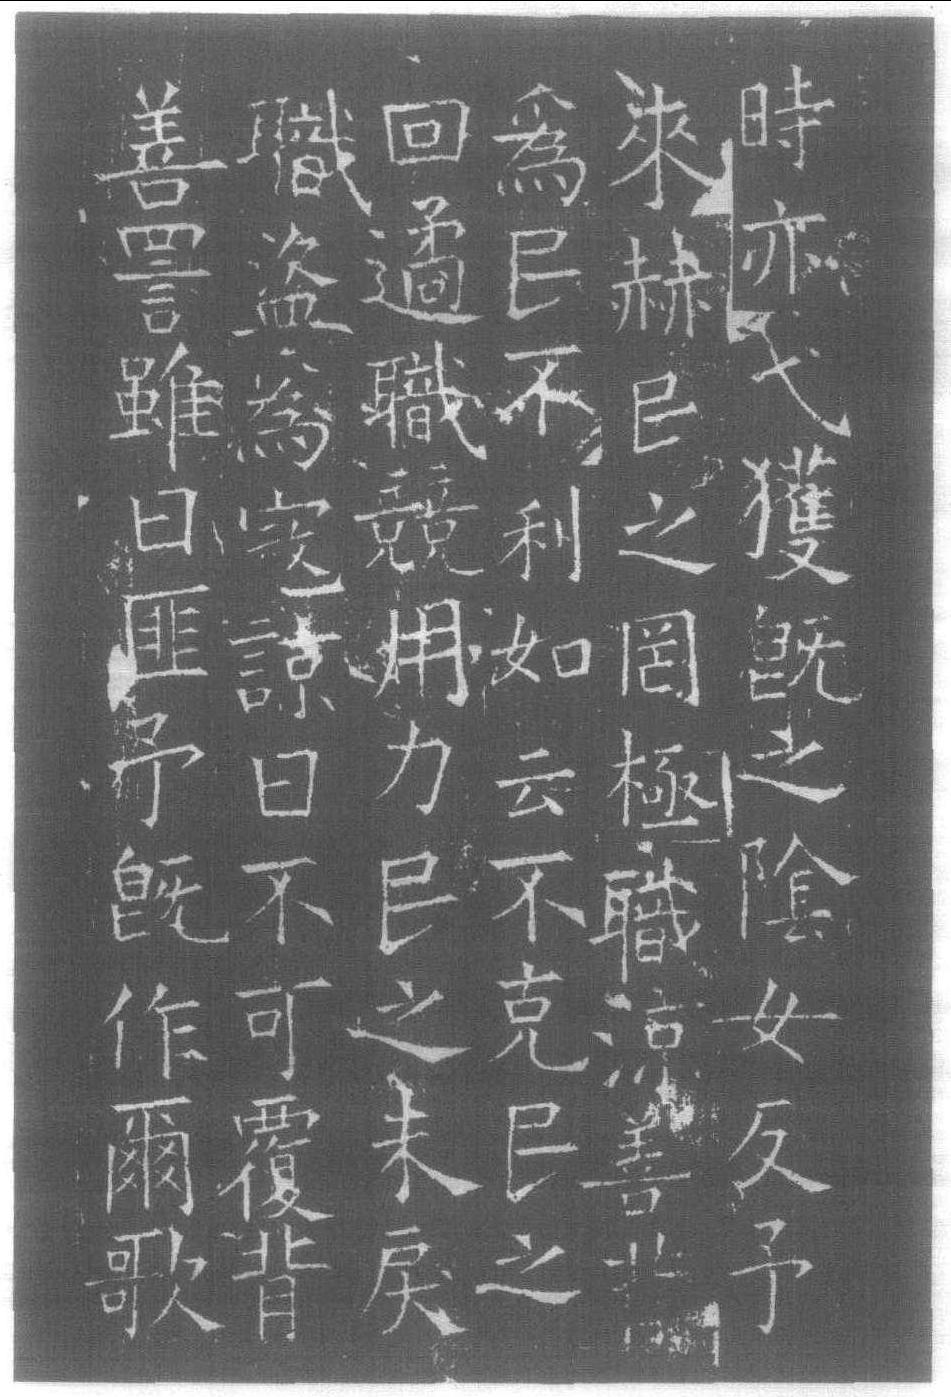 時亦弋獲旣之陰女反予
來赫民之罔極職涼善背
爲民不利如云不克民之
回遹職競用力民之未戾
職盗為寇諒曰不可覆背
善詈雖曰匪予旣作爾歌